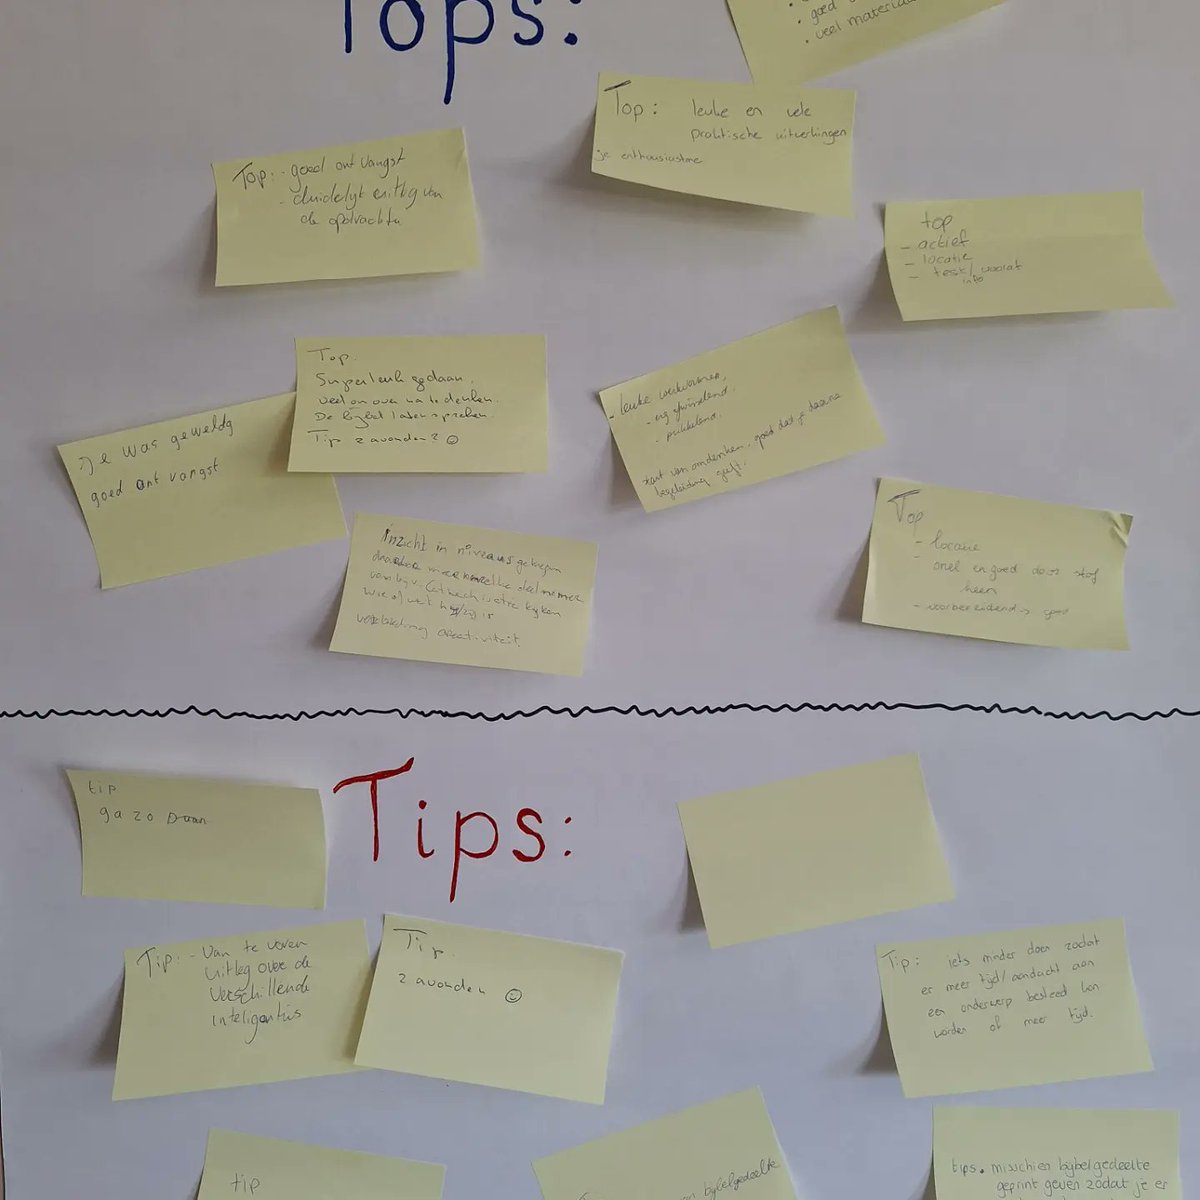 Tops:
• goed
• veel materiaal
Top: leuke en vele
praktische uitwerkingen
je enthousiastme
Top: - goed ont vangst
- duidelijk uitleg van
de opdrachten
top
- actief
- locatie
- test/vooraf
info
Top.
Superleuk gedaan.
veel om over na te denken.
De bijbel laten spreken.
Tip 2 avonden? ☺
- leuke werkvormen,
- erg afwisselend.
- prikkelend.
start van omdenken, goed dat je daarna
begeleiding geeft.
Je was geweldg
goed ont vangst
Top
- locatie
- snel en goed door stof
heen
- voorbereidend goed
Inzicht in niveaus gekregen
deelnemer
wie of wat hij/zij is
creativiteit.
Tips:
tip
ga zo Daan
Tip: - Van te voren
uitleg over de
verschillende
inteligenties
Tip.
2 avonden ☺
Tip: iets minder doen zodat
er meer tijd/aandacht aan
een onderwerp besteed kan
worden of meer tijd.
tip
bijbelgedeelte
tips. misschien bijbelgedeelte
geprint geven zodat je er